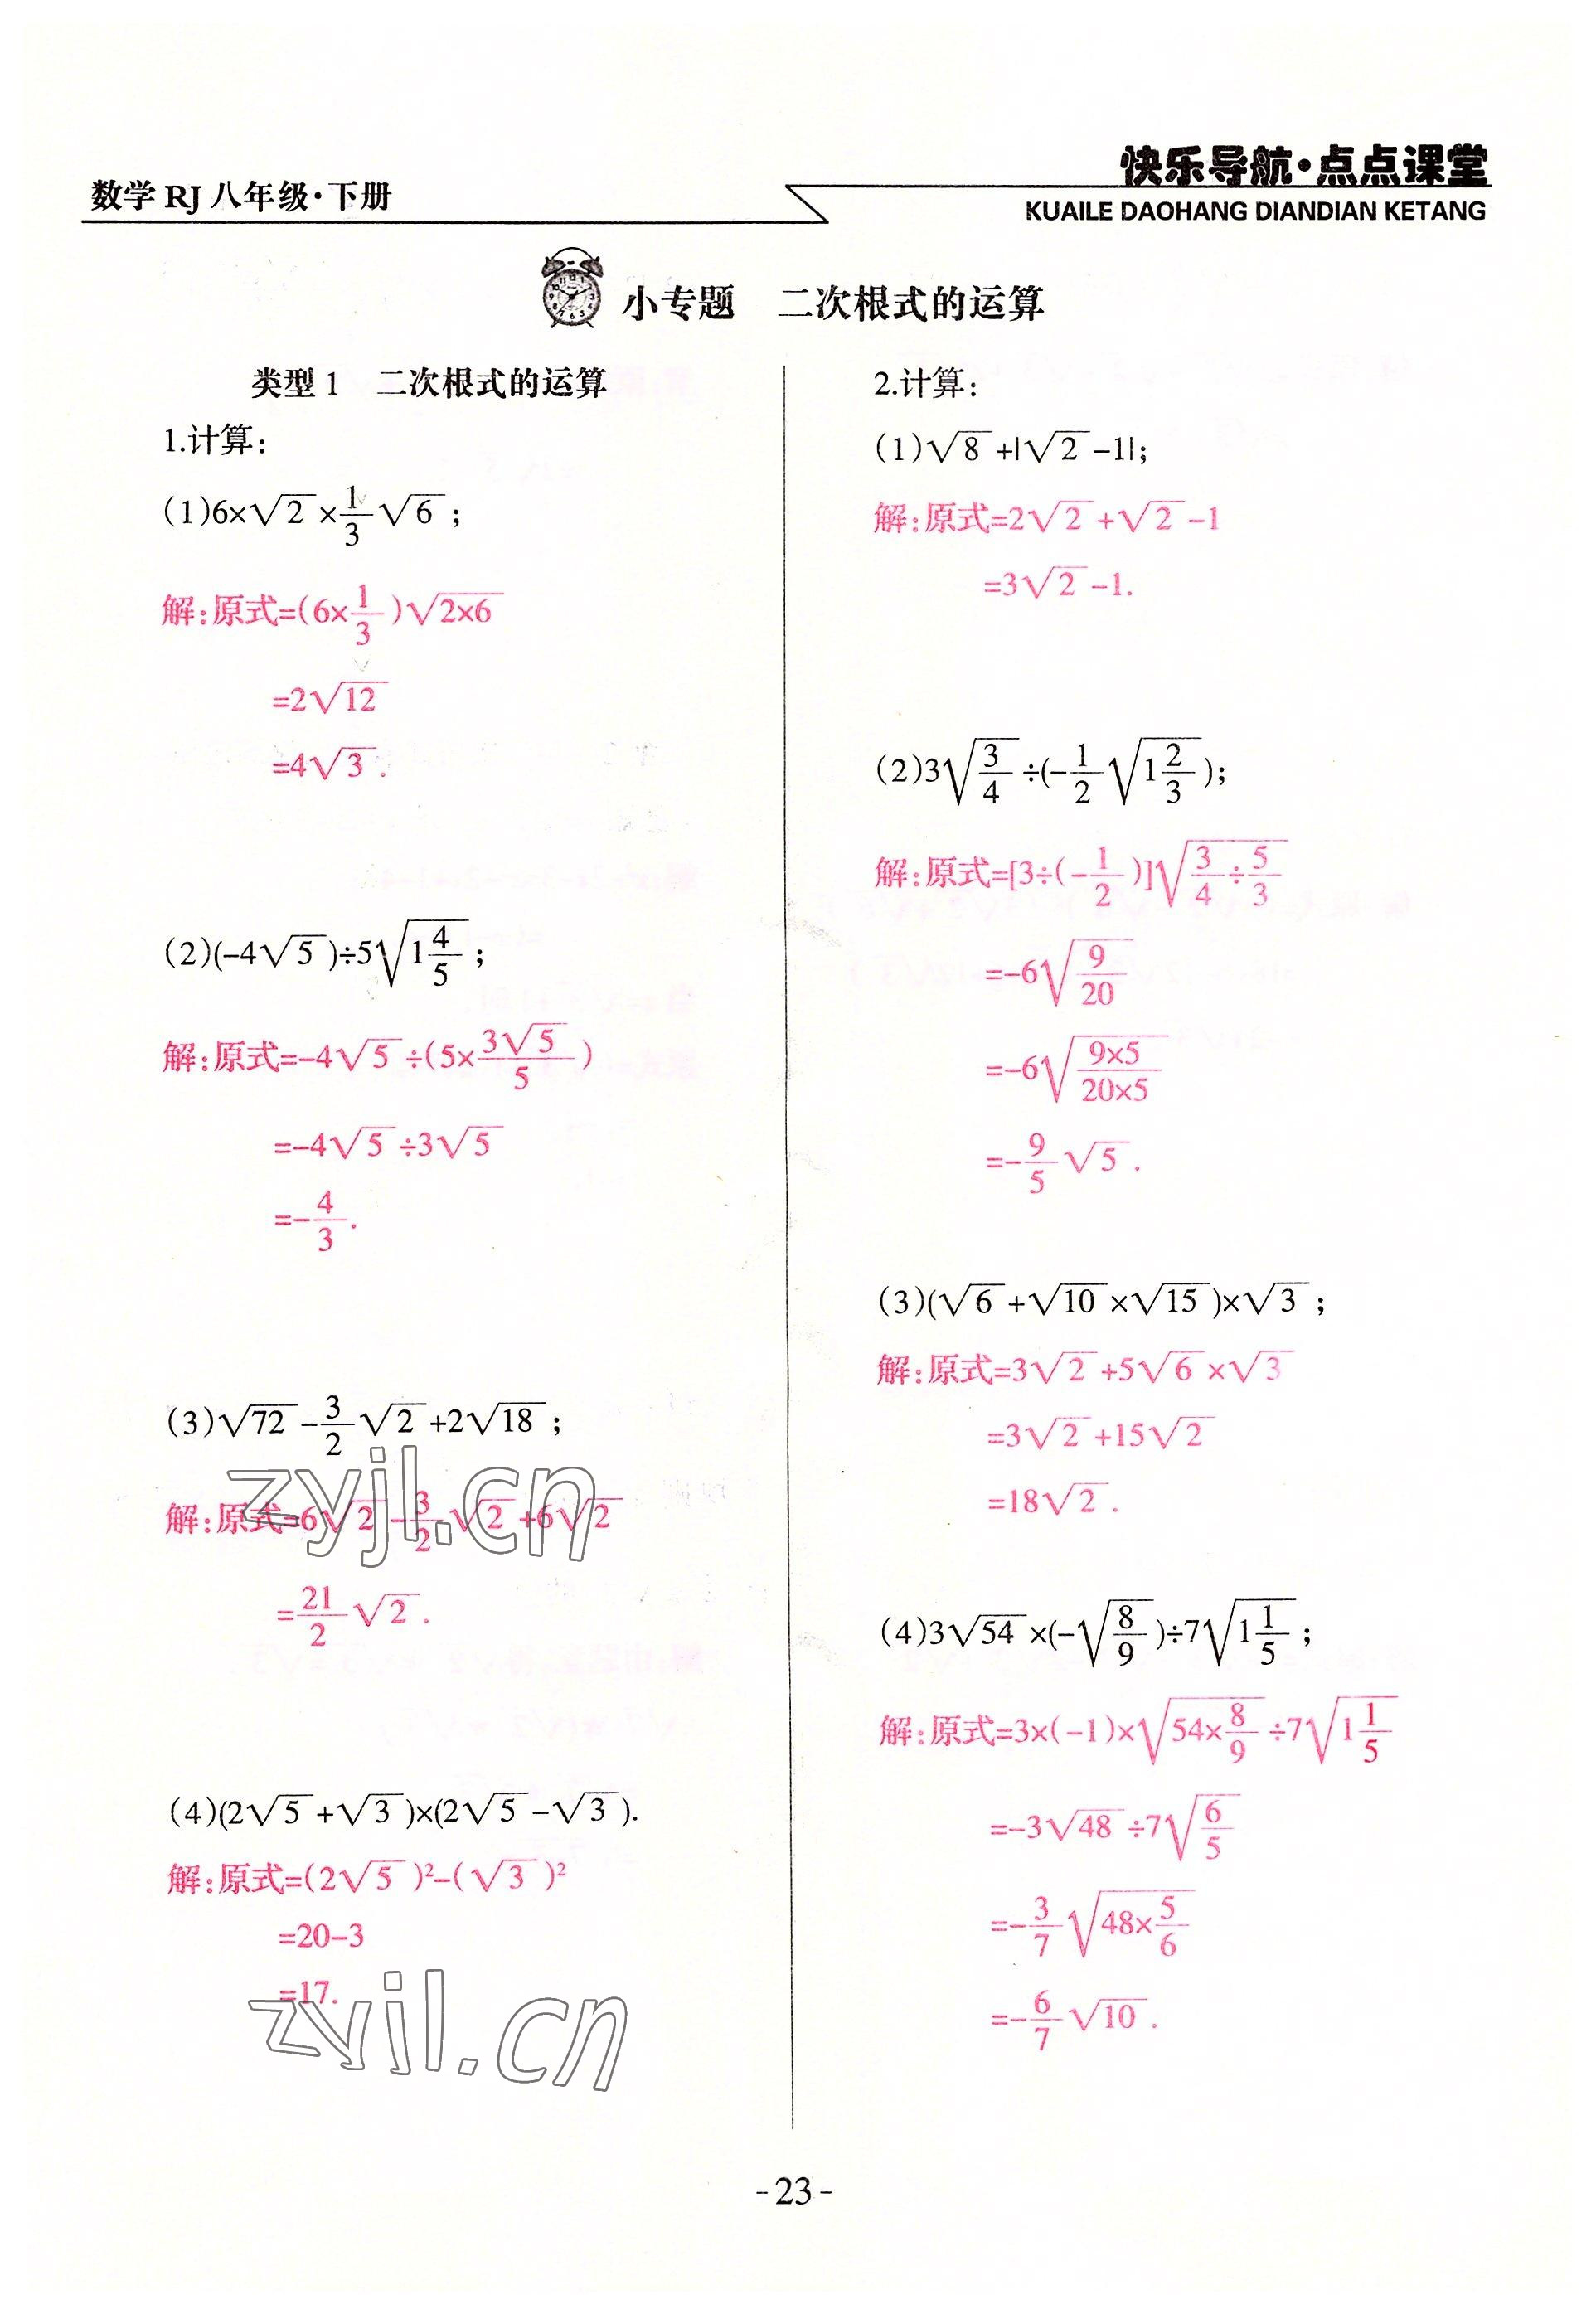 数学 RJ 八年级·下册
快乐导航·点点课堂
KUAILE DAOHANG DIANDIAN KETANG
小专题 二次根式的运算
类型 1 二次根式的运算
1.计算:
(1)6×√2×1/3√6;
解:原式=(6×1/3)√(2×6)
=2√12
=4√3.
(2)(-4√5)÷5√(1 4/5);
解:原式=-4√5÷(5×3√5/5)
=-4√5÷3√5
=-4/3.
(3)√72-3/2√2+2√18;
解:原式=6√2-3/2√2+6√2
=21/2√2.
(4)(2√5+√3)×(2√5-√3).
解:原式=(2√5)²-(√3)²
=20-3
=17.
2.计算:
(1)√8+|√2-1|;
解:原式=2√2+√2-1
=3√2-1.
(2)3√(3/4)÷(-1/2√(1 2/3));
解:原式=[3÷(-1/2)]√(3/4÷5/3)
=-6√(9/20)
=-6√((9×5)/(20×5))
=-9/5√5.
(3)(√6+√10×√15)×√3;
解:原式=3√2+5√6×√3
=3√2+15√2
=18√2.
(4)3√54×(-√(8/9))÷7√(1 1/5);
解:原式=3×(-1)×√(54×8/9)÷7√(1 1/5)
=-3√48÷7√(6/5)
=-3/7√(48×5/6)
=-6/7√10.
zyjl.cn
zyjl.cn
-23-